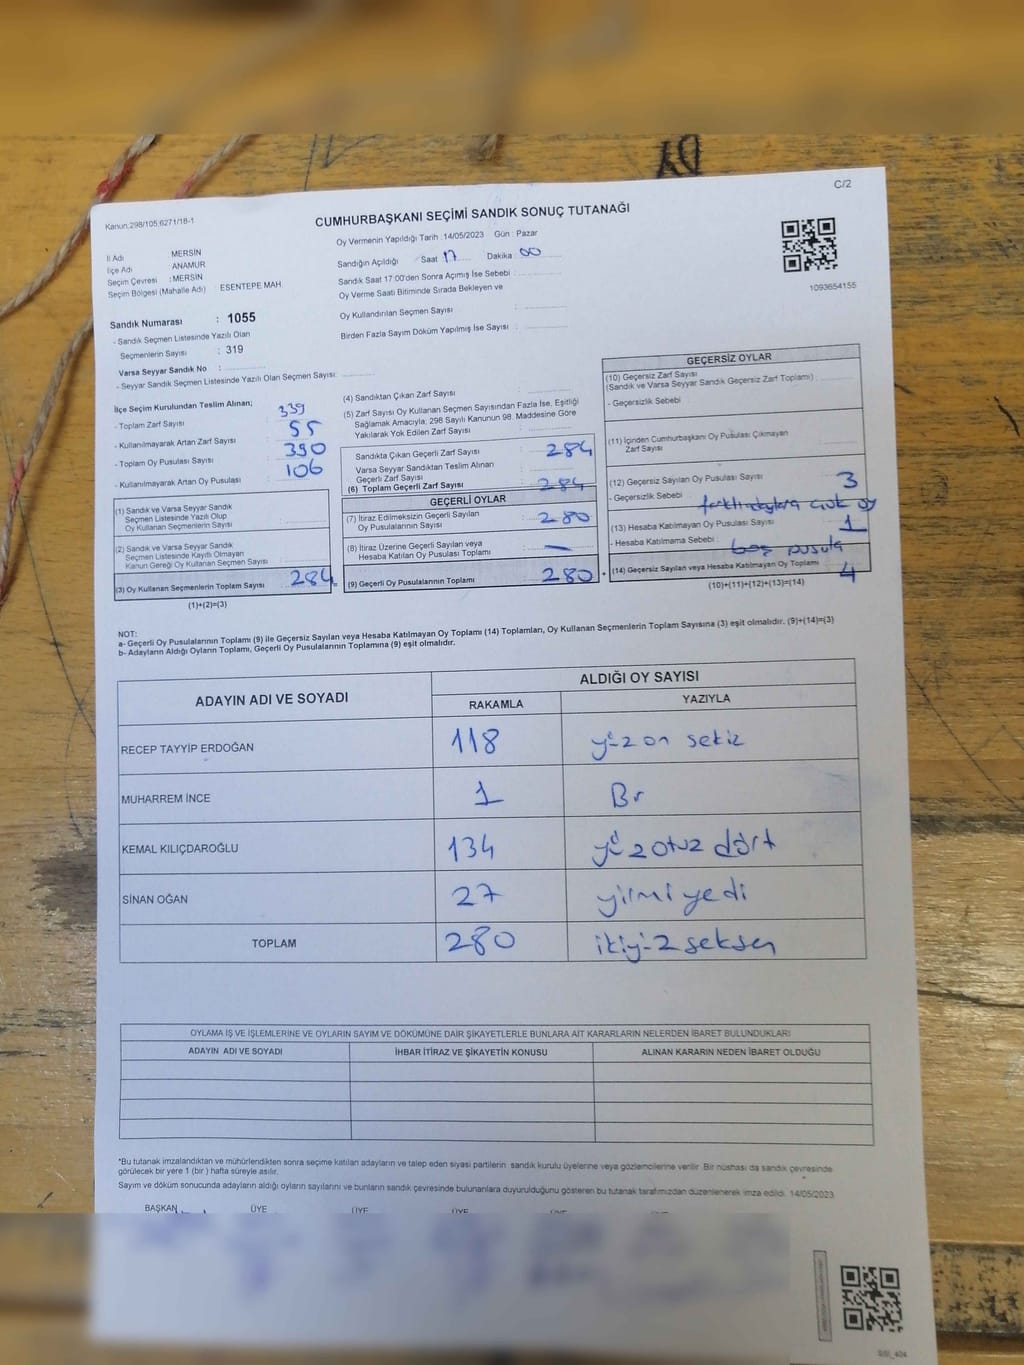 C/2
Kanun:298/105;6271/18-1
CUMHURBAŞKANI SEÇİMİ SANDIK SONUÇ TUTANAĞI
Oy Vermenin Yapıldığı Tarih :14/05/2023 Gün : Pazar
İl Adı MERSİN
İlçe Adı ANAMUR
Seçim Çevresi : MERSİN
Seçim Bölgesi (Mahalle Adı) : ESENTEPE MAH.
Sandığın Açıldığı Saat 17 Dakika 00
Sandık Saat 17:00'den Sonra Açımış İse Sebebi :
Oy Verme Saati Bitiminde Sırada Bekleyen ve
Oy Kullandırılan Seçmen Sayısı :
Birden Fazla Sayım Döküm Yapılmış İse Sayısı :
1093654155
Sandık Numarası : 1055
- Sandık Seçmen Listesinde Yazılı Olan
Seçmenlerin Sayısı : 319
Varsa Seyyar Sandık No :
- Seyyar Sandık Seçmen Listesinde Yazılı Olan Seçmen Sayısı:
İlçe Seçim Kurulundan Teslim Alınan;
- Toplam Zarf Sayısı : 339
- Kullanılmayarak Artan Zarf Sayısı : 55
- Toplam Oy Pusulası Sayısı : 390
- Kullanılmayarak Artan Oy Pusulası : 106
(1) Sandık ve Varsa Seyyar Sandık
Seçmen Listesinde Yazılı Olup
Oy Kullanan Seçmenlerin Sayısı :
(2) Sandık ve Varsa Seyyar Sandık
Seçmen Listesinde Kayıtlı Olmayan
Kanun Gereği Oy Kullanan Seçmen Sayısı :
(3) Oy Kullanan Seçmenlerin Toplam Sayısı 284
(1)+(2)=(3)
(4) Sandıktan Çıkan Zarf Sayısı :
(5) Zarf Sayısı Oy Kullanan Seçmen Sayısından Fazla İse, Eşitliği
Sağlamak Amacıyla, 298 Sayılı Kanunun 98. Maddesine Göre
Yakılarak Yok Edilen Zarf Sayısı :
Sandıkta Çıkan Geçerli Zarf Sayısı : 284
Varsa Seyyar Sandıktan Teslim Alınan
Geçerli Zarf Sayısı :
(6) Toplam Geçerli Zarf Sayısı : 284
GEÇERLİ OYLAR
(7) İtiraz Edilmeksizin Geçerli Sayılan
Oy Pusulalarının Sayısı : 280
(8) İtiraz Üzerine Geçerli Sayılan veya
Hesaba Katılan Oy Pusulası Toplamı : —
(9) Geçerli Oy Pusulalarının Toplamı : 280
GEÇERSİZ OYLAR
(10) Geçersiz Zarf Sayısı
(Sandık ve Varsa Seyyar Sandık Geçersiz Zarf Toplamı) :
- Geçersizlik Sebebi :
(11) İçinden Cumhurbaşkanı Oy Pusulası Çıkmayan
Zarf Sayısı :
(12) Geçersiz Sayılan Oy Pusulası Sayısı : 3
- Geçersizlik Sebebi : oy
(13) Hesaba Katılmayan Oy Pusulası Sayısı : 1
- Hesaba Katılmama Sebebi : boş pusula
(14) Geçersiz Sayılan veya Hesaba Katılmayan Oy Toplamı : 4
(10)+(11)+(12)+(13)=(14)
NOT:
a- Geçerli Oy Pusulalarının Toplamı (9) ile Geçersiz Sayılan veya Hesaba Katılmayan Oy Toplamı (14) Toplamları, Oy Kullanan Seçmenlerin Toplam Sayısına (3) eşit olmalıdır. (9)+(14)=(3)
b- Adayların Aldığı Oyların Toplamı, Geçerli Oy Pusulalarının Toplamına (9) eşit olmalıdır.
ADAYIN ADI VE SOYADI ALDIĞI OY SAYISI
RAKAMLA YAZIYLA
RECEP TAYYİP ERDOĞAN 118 yüz on sekiz
MUHARREM İNCE 1 Bir
KEMAL KILIÇDAROĞLU 134 yüz otuz dört
SİNAN OĞAN 27 yirmi yedi
TOPLAM 280 ikiyüz seksen
OYLAMA İŞ VE İŞLEMLERİNE VE OYLARIN SAYIM VE DÖKÜMÜNE DAİR ŞİKAYETLERLE BUNLARA AİT KARARLARIN NELERDEN İBARET BULUNDUKLARI
ADAYIN ADI VE SOYADI İHBAR İTİRAZ VE ŞİKAYETİN KONUSU ALINAN KARARIN NEDEN İBARET OLDUĞU
*Bu tutanak imzalandıktan ve mühürlendikten sonra seçime katılan adayların ve talep eden siyasi partilerin sandık kurulu üyelerine veya gözlemcilerine verilir. Bir nüshası da sandık çevresinde
görülecek bir yere 1 (bir) hafta süreyle asılır.
Sayım ve döküm sonucunda adayların aldığı oyların sayılarını ve bunların sandık çevresinde bulunanlara duyurulduğunu gösteren bu tutanak tarafımızdan düzenlenerek imza edildi. 14/05/2023
BAŞKAN ÜYE ÜYE ÜYE ÜYE